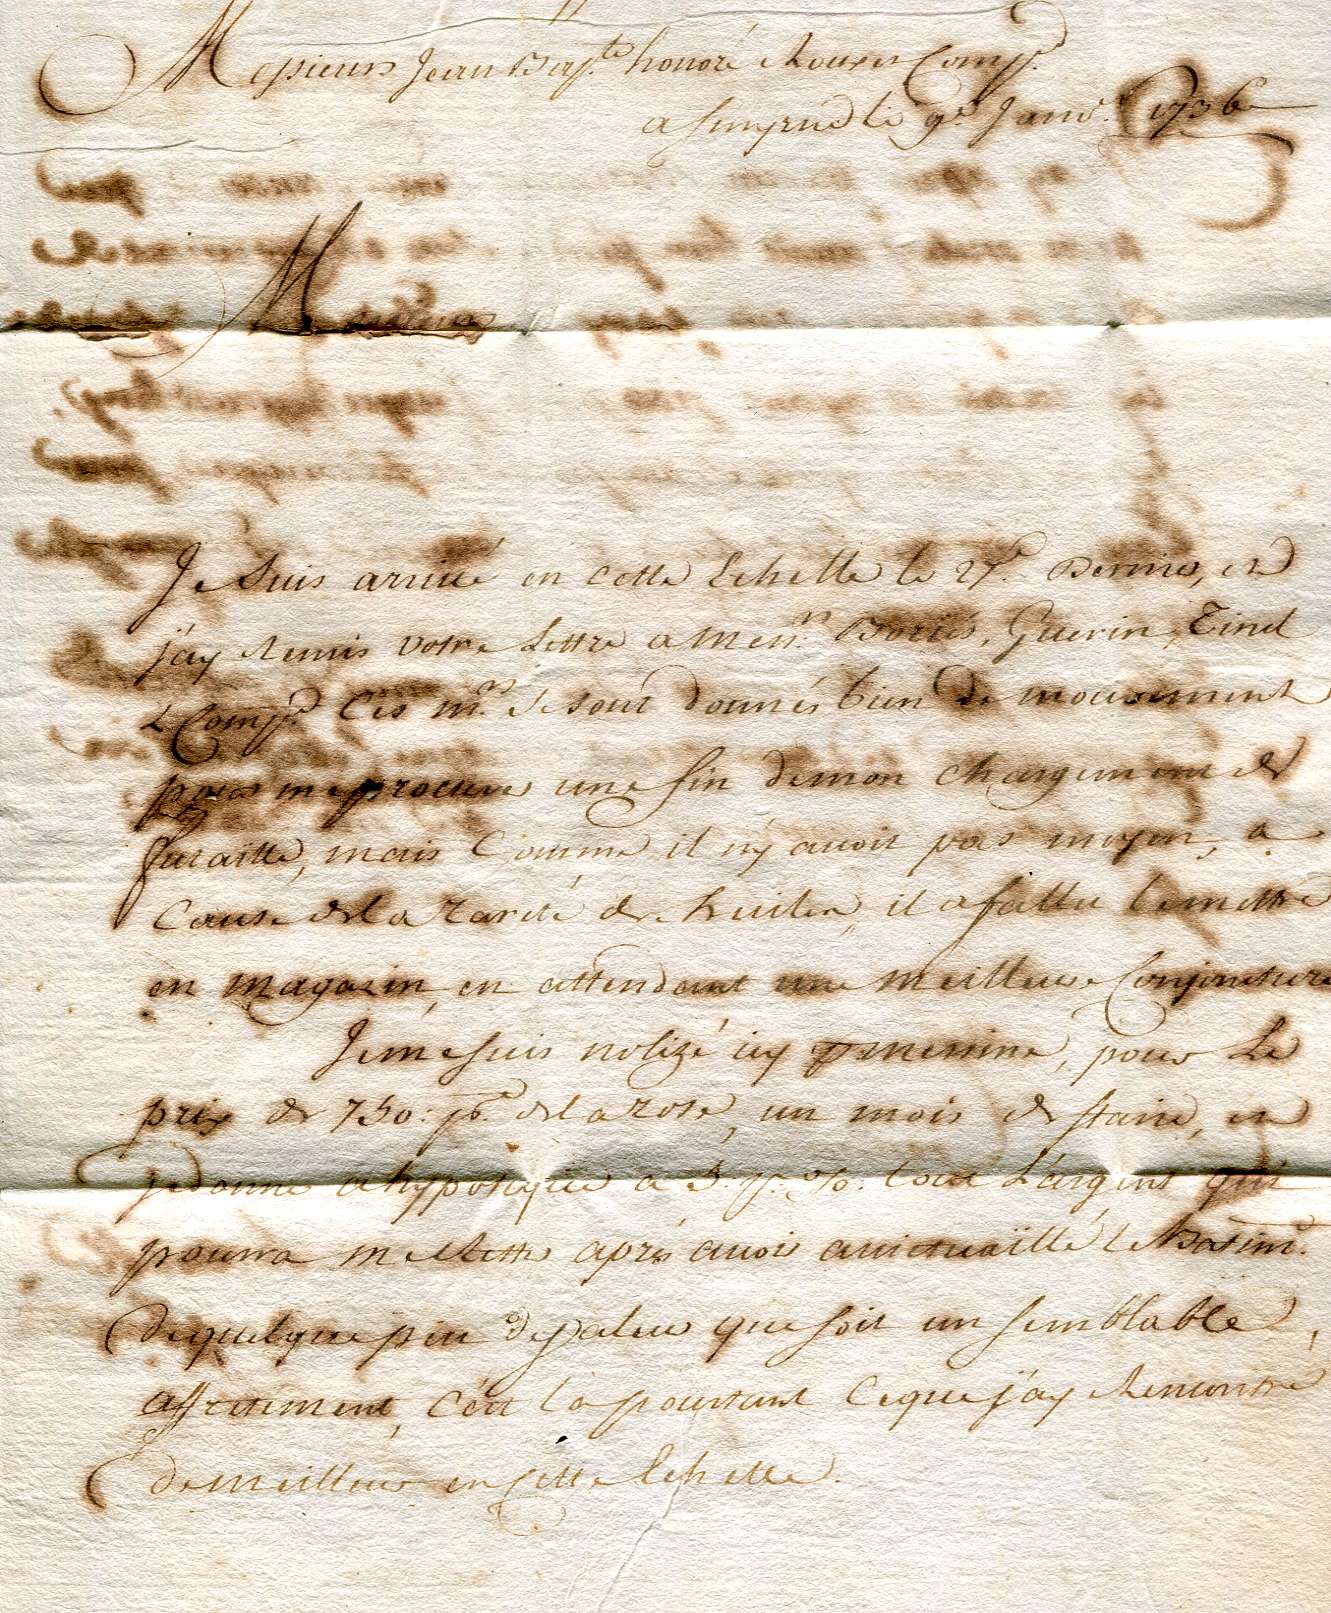 Messieurs Jean Bap.te honoré Roux & Comp.e
a Smyrne le 9.e Janv.r 1736
Messieurs
Je suis arrivé en cette Echelle le 27.e Dernier, et
j'ay remis votre Lettre a Mess.rs Borriés, Guerin, Tinel
& Comp.e Ces m.rs se sont donnés bien de mouvement
pour me procurer une fin de mon chargement de
futaille, mais Comme il n'y avoit pas moyen, a
Cause de la rareté des huiles, il a fallu le mettre
en magazin en attendant une meilleure Conjoncture
Je me suis nolizé icy p.r messine, pour Le
prix de 750: p.e de la rose, un mois de starie, et
je donne a hypoteque a 3. p.r %. tout L'argent qui
pourra m'Rester aprés avoir avictuaillé le Batim.t
De quelque peu de valeur que soit un semblable
affretement, c'est la pourtant Ce que j'ay Rencontré
de meilleur en Cette Echelle.